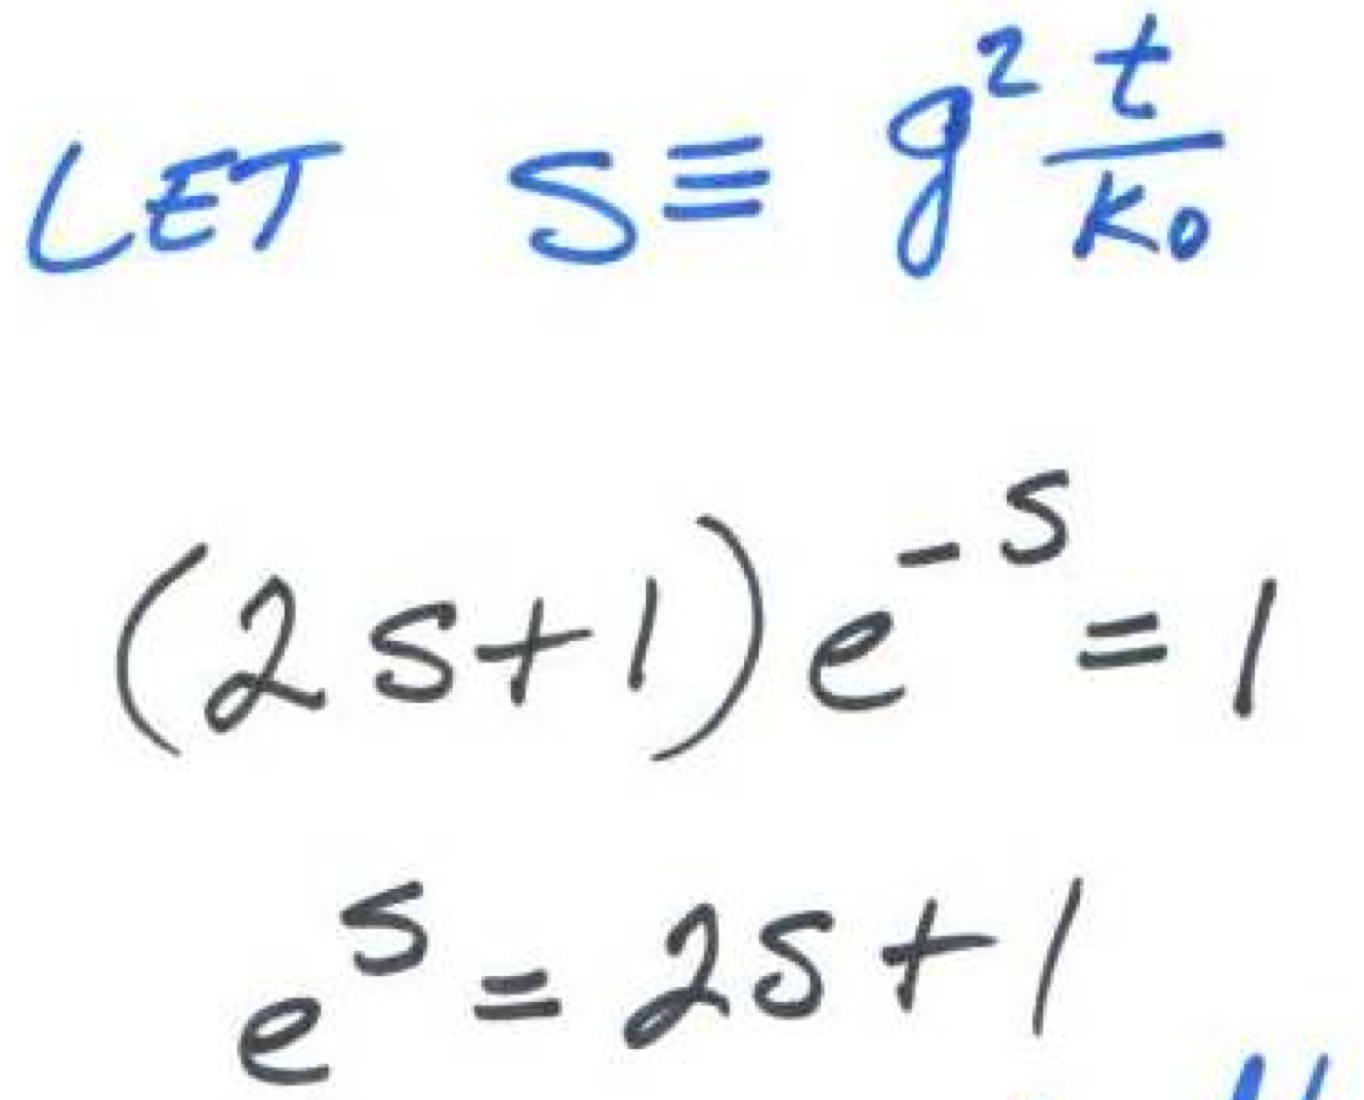 LET S ≡ g² t/k₀
(2s+1)e⁻ˢ = 1
eˢ = 2s+1